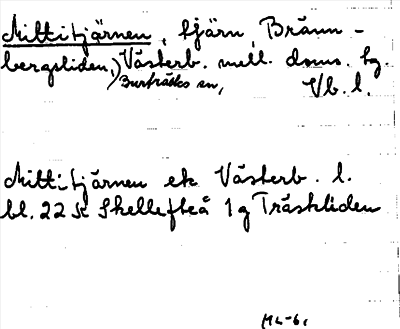 Mittitjärnen, tjärn, Bränn-
bergsliden, Västerb. mell. doms. tg.
Burträsks sn, Vb. l.
Mittitjärnen ek Västerb. l.
bl. 22 K Skellefteå 1 g Träskliden